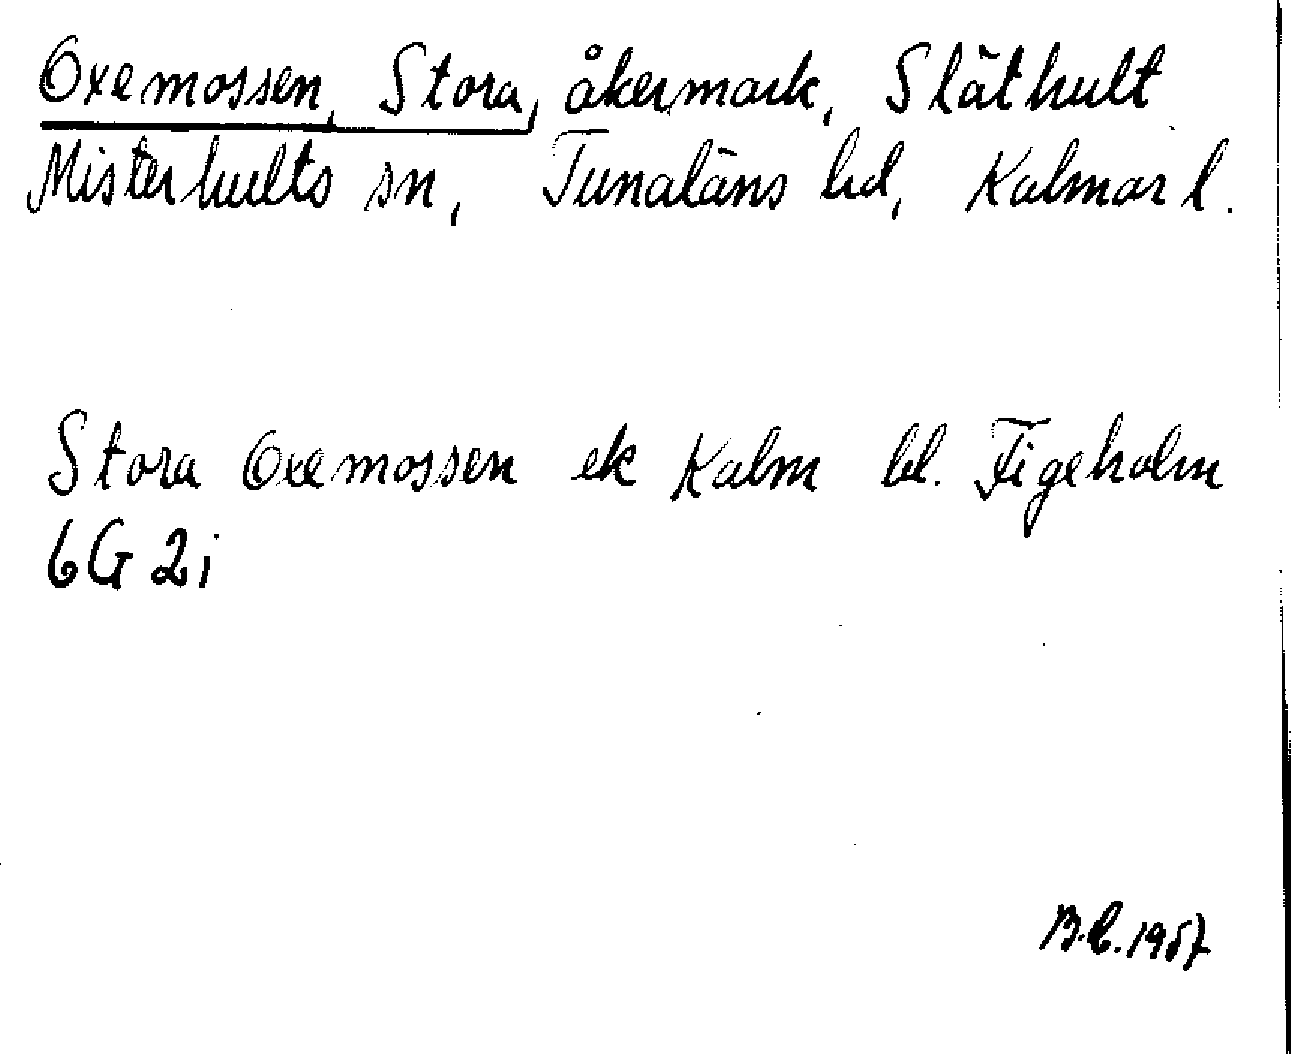 Oxemossen, Stora, åkermark, Släthult
Misterhults sn, Tunaläns hd, Kalmar l.
Stora Oxemossen ek Kalm bl. Figeholm
6G 2i
B.C. 1957